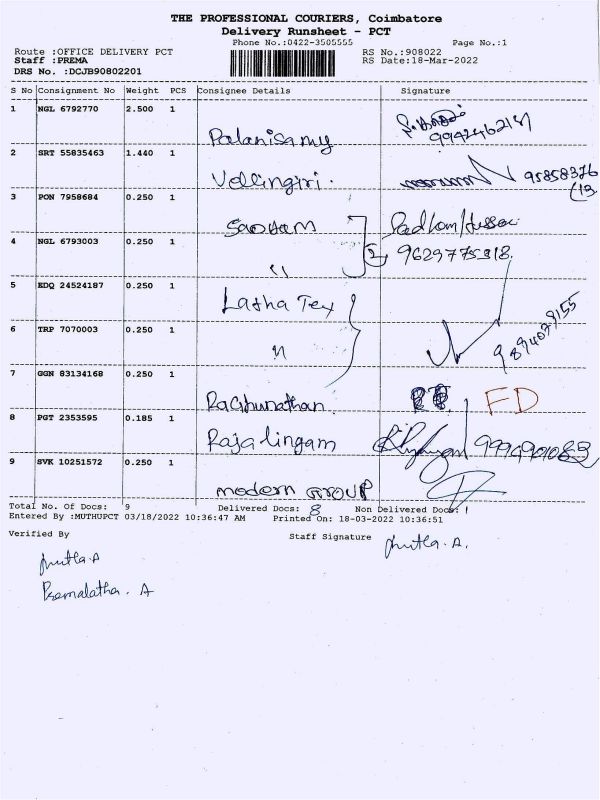 THE PROFESSIONAL COURIERS, Coimbatore
Delivery Runsheet - PCT
Phone No.:0422-3505555 Page No.:1
Route :OFFICE DELIVERY PCT RS No.:908022
Staff :PREMA RS Date:18-Mar-2022
DRS No. :DCJB90802201
S No Consignment No Weight PCS Consignee Details Signature
1 NGL 6792770 2.500 1
Palanisamy
2 SRT 55835463 1.440 1
Vellingiri.
3 PON 7958684 0.250 1
Saoham
4 NGL 6793003 0.250 1 2 9629775818.
"
5 EDQ 24524187 0.250 1
Latha Tex
6 TRP 7070003 0.250 1 9894079155
"
7 GGN 83134168 0.250 1
Raghunathan FD
8 PGT 2353595 0.185 1
Rajalingam
9 SVK 10251572 0.250 1
modern GROUP
Total No. Of Docs: 9 Delivered Docs: 8 Non Delivered Docs: 1
Entered By :MUTHUPCT 03/18/2022 10:36:47 AM Printed On: 18-03-2022 10:36:51
Verified By Staff Signature
Premalatha. A